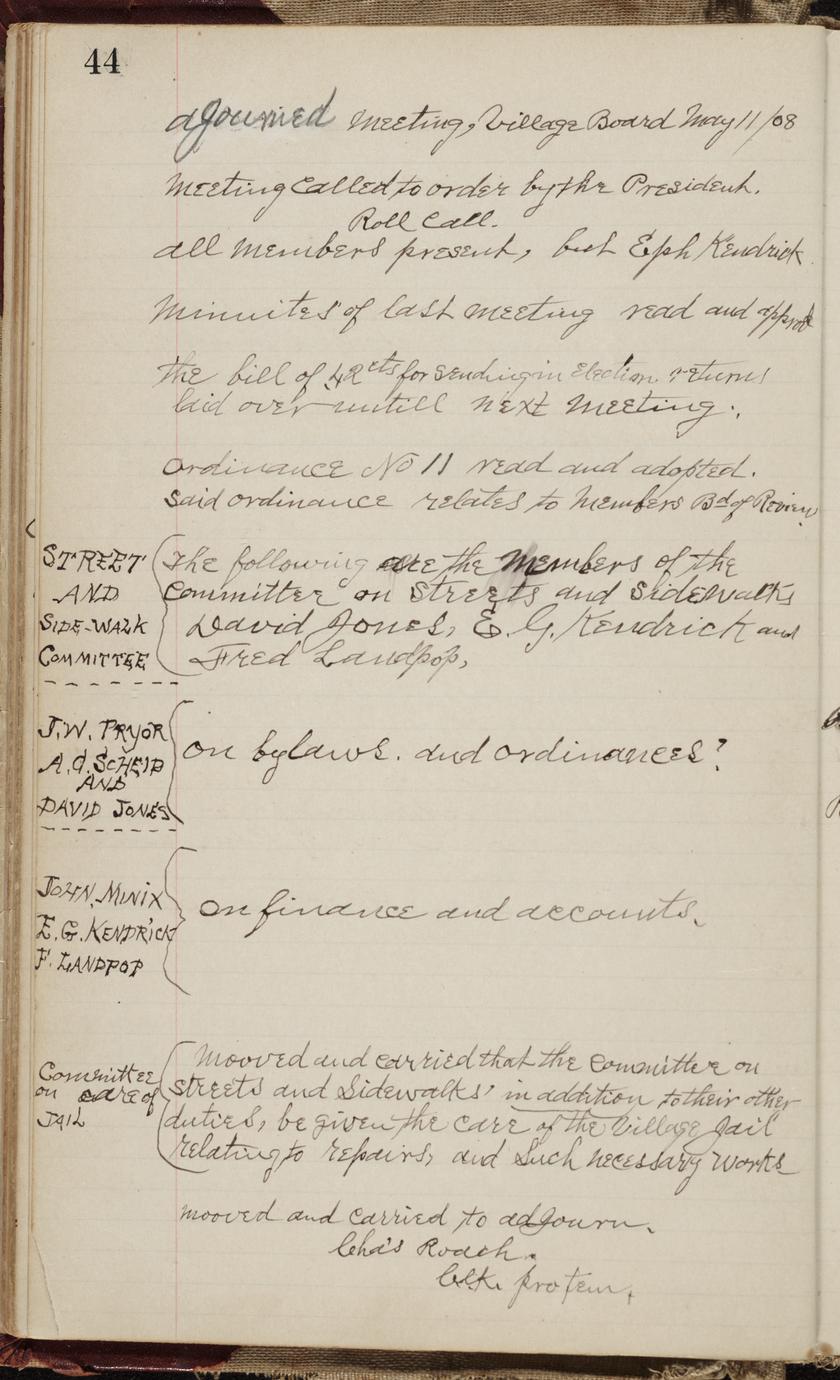 44
adjourned Meeting, Village Board May 11/08
Meeting called to order by the President.
Roll Call.
all members present, but Eph Kendrick
Minuites of last meeting read and approd
the bill of 42cts for sending in Election returns
laid over untill next Meeting.
Ordinance No 11 read and adopted.
Said ordinance relates to Members Bd of Review
STREET
AND
SIDE-WALK
COMMITTEE
The following are the Members of the
Committee on Streets and Sidewalks
David Jones, E. G. Kendrick and
Fred Landpop,
J.W. PRYOR
A.C. SCHEID
AND
DAVID JONES
on bylaws. and ordinances?
JOHN. MINIX
E.G. KENDRICK
F. LANDPOP
On finance and accounts.
Committee
on care of
JAIL
Mooved and carried that the Committee on
Streets and Sidewalks' in addition to their other
duties, be given the care of the Village Jail
relating to repairs, and such necessary works
mooved and carried to adjourn.
Cha's Roach.
Clk. protem.